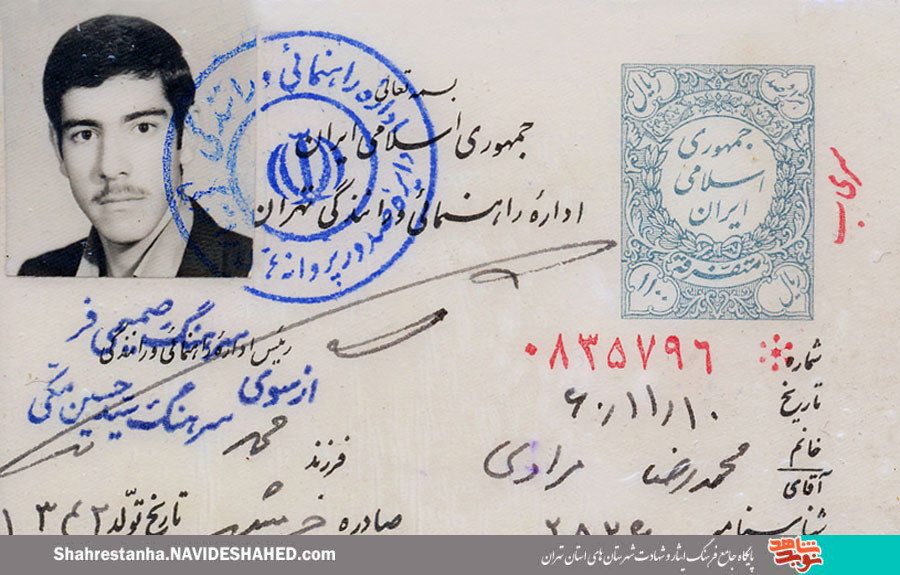 بسمه تعالی
جمهوری اسلامی ایران
اداره راهنمائی و رانندگی تهران
دویست ریال
جمهوری
اسلامی
ایران
متفرقه
۲۰۰ ریال
اداره راهنمائی و رانندگی
صدور پروانه
سرهنگ صمیمی فر
رئیس اداره راهنمائی و رانندگی
از سوی
سرهنگ سید حسین مکی
شماره ۰۸۳۵۷۹۶
تاریخ ۶۰/۱۱/۱۰
خانم
آقای محمدرضا مرادی
فرزند
شناسنامه
صادره
تاریخ تولد
Shahrestanha.NAVIDESHAHED.com
پایگاه جامع فرهنگ ایثار و شهادت شهرستان های استان تهران
نوید شاهد